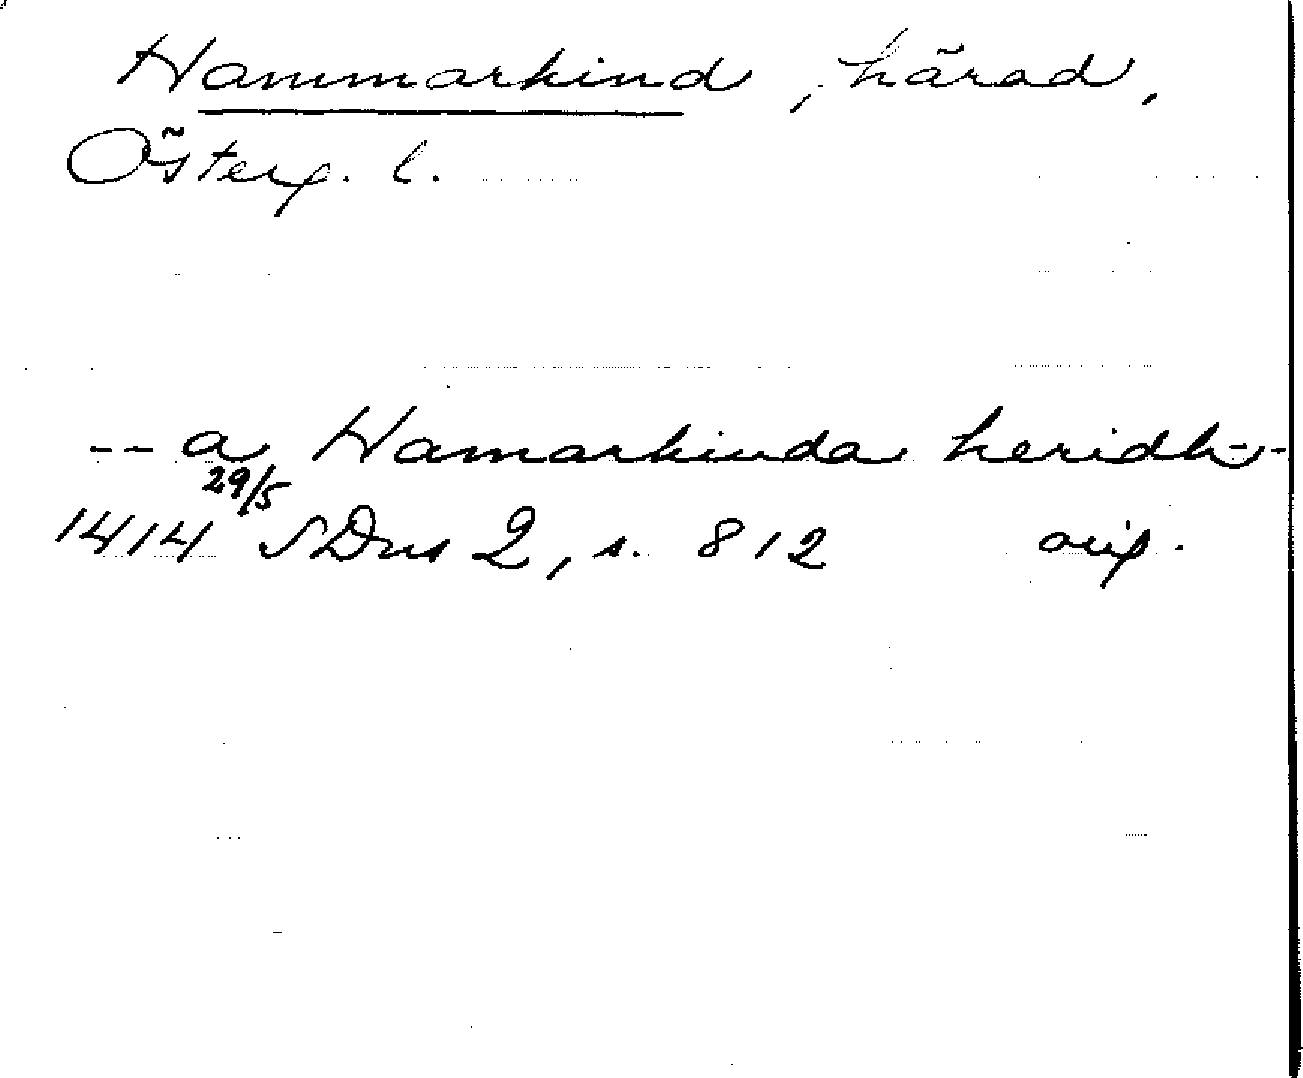 Hammarkind, härad,
Österg. l.
-- a Hamarkinda heridh --
29/5
1414 SDns 2, s. 812 orig.